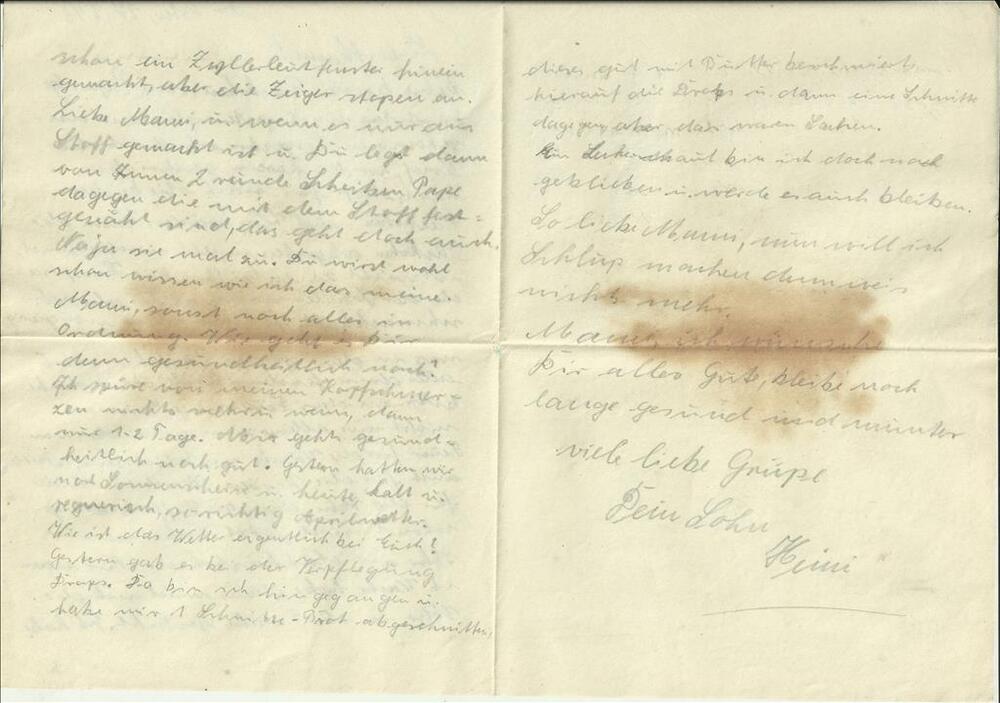 schon ein Zyllerleutfenster hinein
gemacht, aber die Zeiger stopen an.
Liebe Mami, u. wenn es nur aus
Stoff gemacht ist u. Du legst dann
von Innen 2 runde Scheiben Pape
dagegen die mit dem Stoff fest=
genäht sind, das geht doch auch.
Naja sie mal zu. Du wirst wohl
schon wissen wie ich das meine.
Mami, sonst noch alles in
Ordnung. Wie geht es Dir
denn gesundheitlich noch?
Ich spüre von meinen Kopfschmer-
zen nichts mehr u. wenn, dann
nur 1-2 Tage. Mir gehts gesund-
heitlich noch gut. Gestern hatten wir
noch Sonnenschein u. heute, kalt u.
regnerisch, so richtig Aprilwetter.
Wie ist das Wetter eigentlich bei Euch?
Gestern gab es bei der Verpflegung
Drops. Da bin ich hingegangen u.
habe mir 1 Schnitte-Brot abgeschnitten,
dieses gut mit Butter beschmiert
hierauf die Drops u. dann eine Schnitte
dagegen, aber, das waren Sachen.
Ein bin ich doch noch
geblieben u. werde es auch bleiben.
So liebe Mami, nun will ich
Schluß machen denn weis
nichts mehr.
Mami, ich wünsche
Dir alles Gute, bleibe noch
lange gesund und munter
viele liebe Grüße
Dein Sohn
Heini